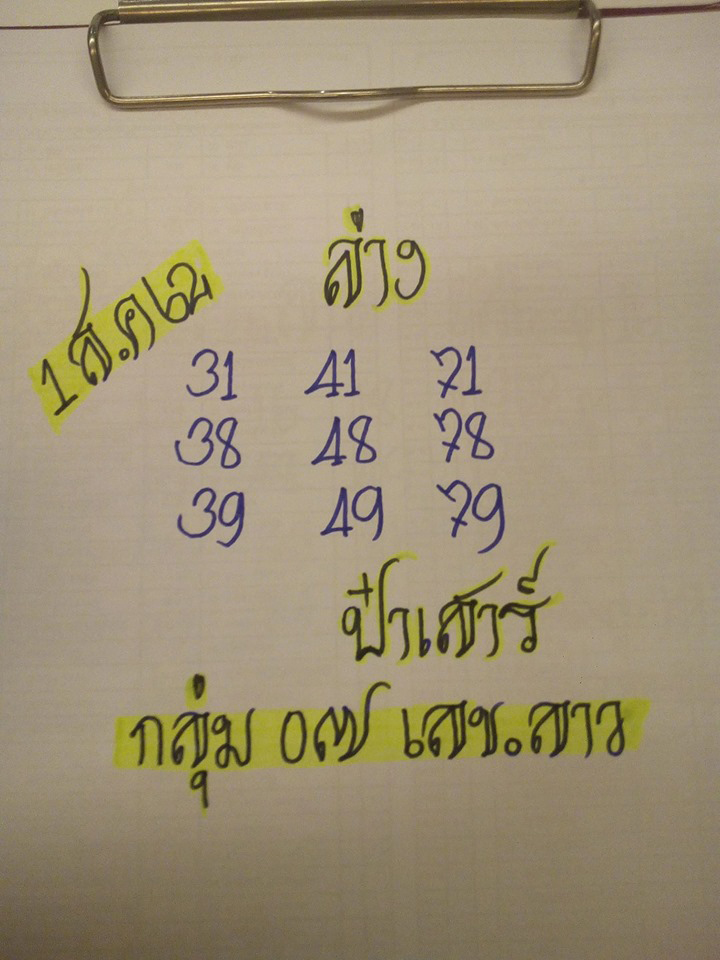 ล่าง
1ส.ค62
31 41 71
38 48 78
39 49 79
ป๋าเสาร์
กลุ่ม ๐๗ เลข.ลาว